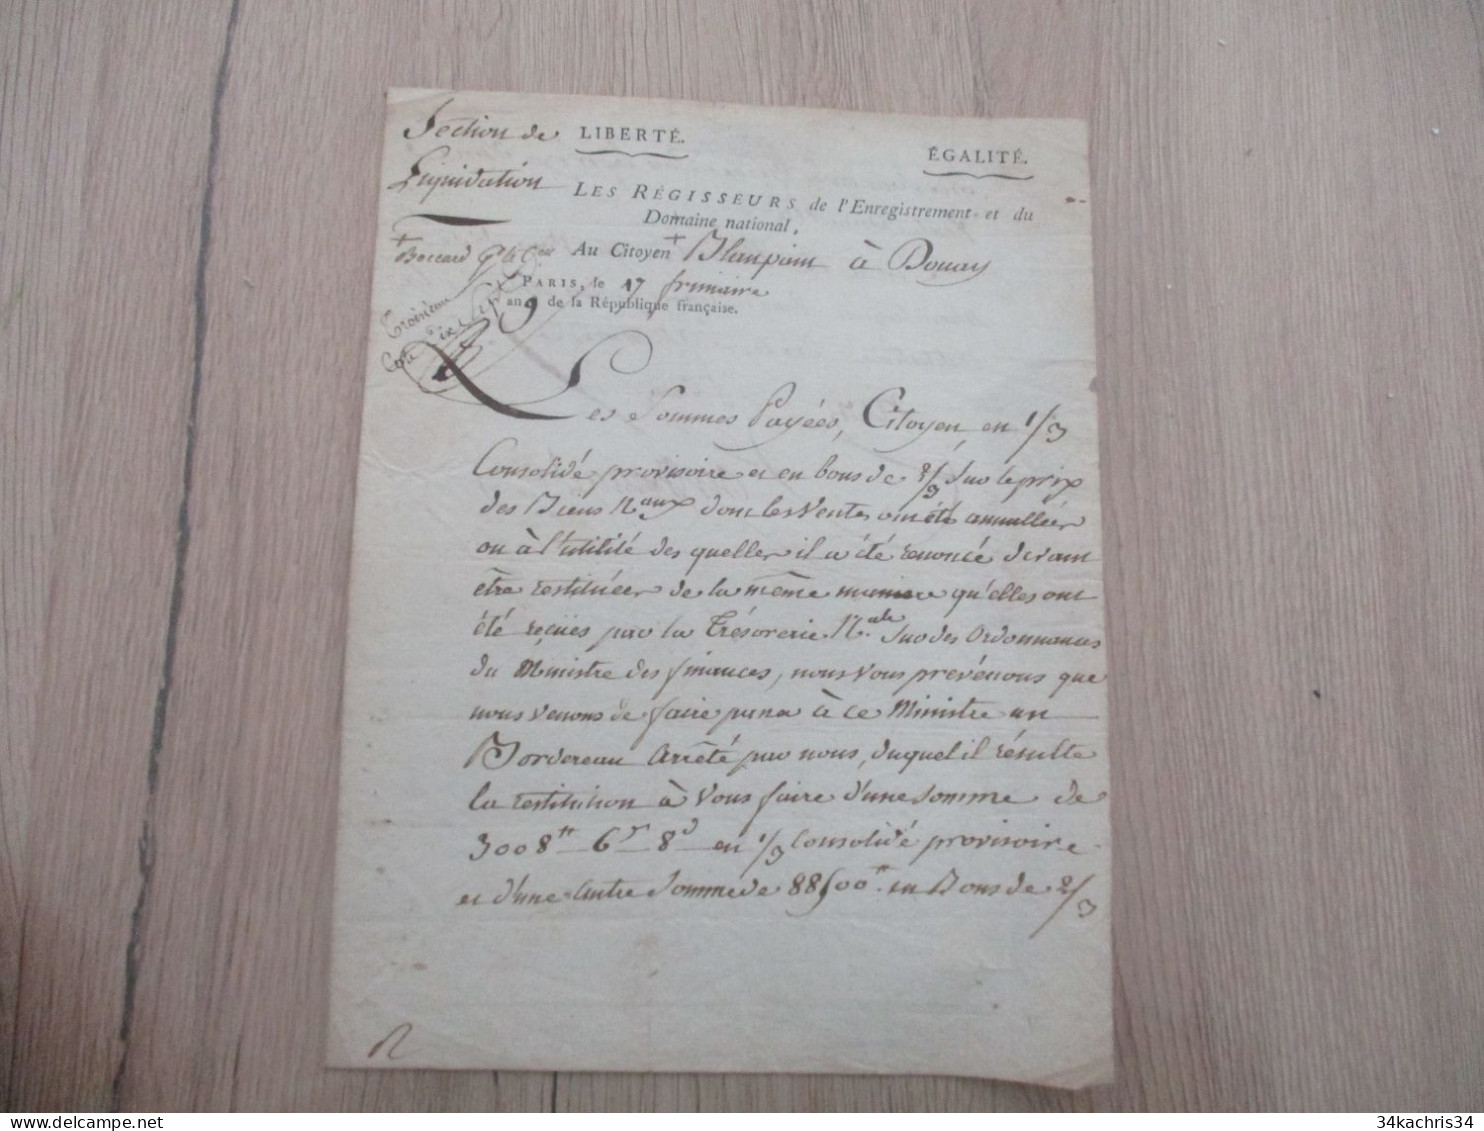 Section de
Liquidation
LIBERTÉ.
ÉGALITÉ.
LES RÉGISSEURS de l'Enregistrement et du
Domaine national,
Au Citoyen + Blanpain à Douay
+ Boccard
PARIS, le 17 frimaire
an 9 de la République française.
Troisième
Les Sommes Payées, Citoyen, en 1/3
Consolidé provisoire et en bons de 2/3 Sur le prix
des Biens Naux dont les Ventes ont été annullées
ou à l'utilité des quelles il a été renoncé devant
être restituées de la même maniere qu'elles ont
été reçües par la Trésorerie Nale Sur des Ordonnances
du Ministre des finances, nous vous prévenons que
nous venons de faire passer à ce Ministre un
Bordereau Arrêté par nous, duquel il résulte
la restitution à Vous faire d'une somme de
3008tt 6s 8d en 1/3 Consolidé provisoire
et d'une autre Somme de 88500tt en Bons de 2/3
delcampe.net
34kachris34